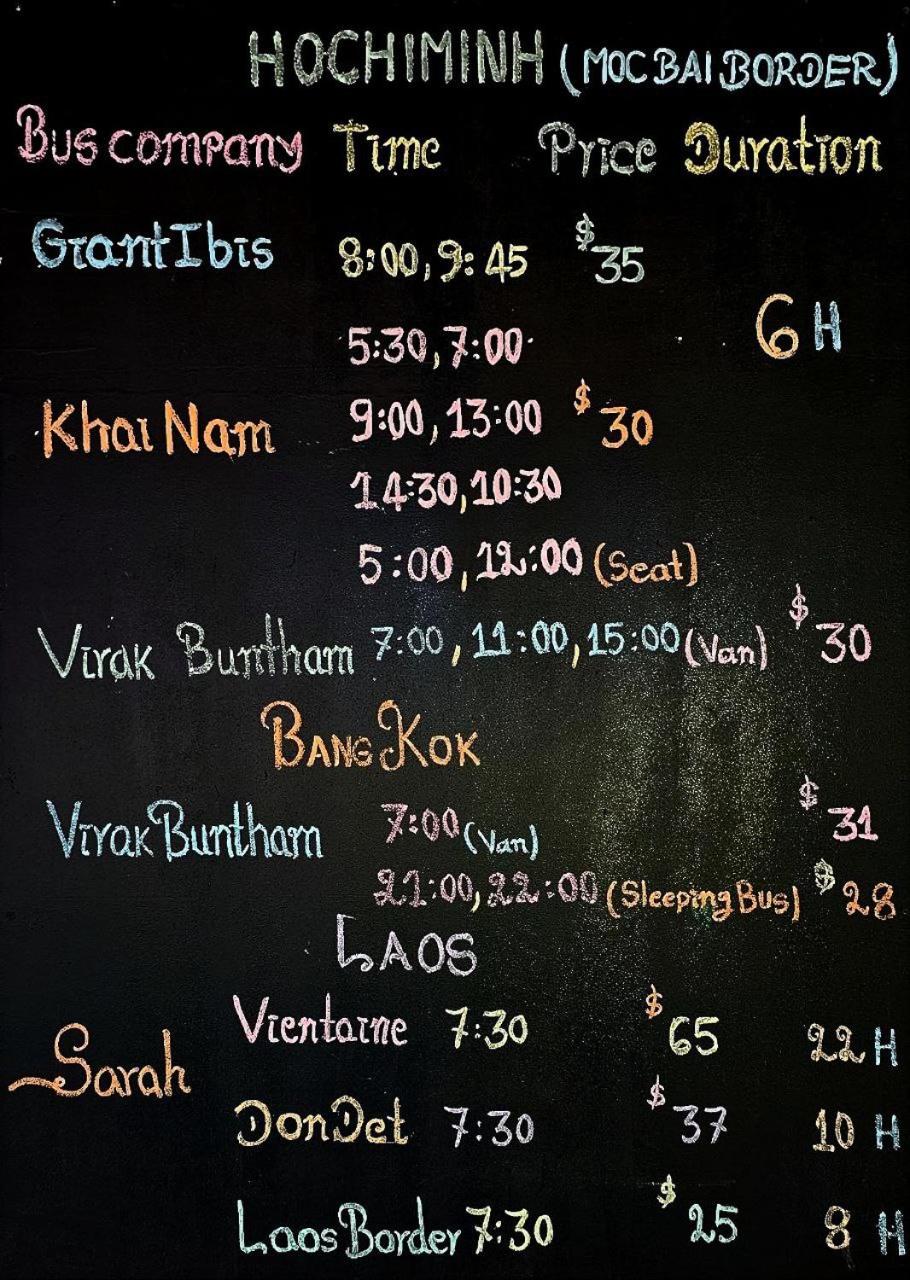 HOCHIMINH (MOC BAI BORDER)
Bus company Time Price Duration
Giant Ibis 8:00, 9:45 $35
6 H
5:30, 7:00
Khai Nam 9:00, 13:00 $30
14:30, 10:30
5:00, 12:00 (Seat)
Virak Buntham 7:00, 11:00, 15:00 (Van) $30
BANGKOK
Virak Buntham 7:00 (Van) $31
21:00, 22:00 (Sleeping Bus) $28
LAOS
Vientaine 7:30 $65 22 H
Sarah
Don Det 7:30 $37 10 H
Laos Border 7:30 $25 8 H